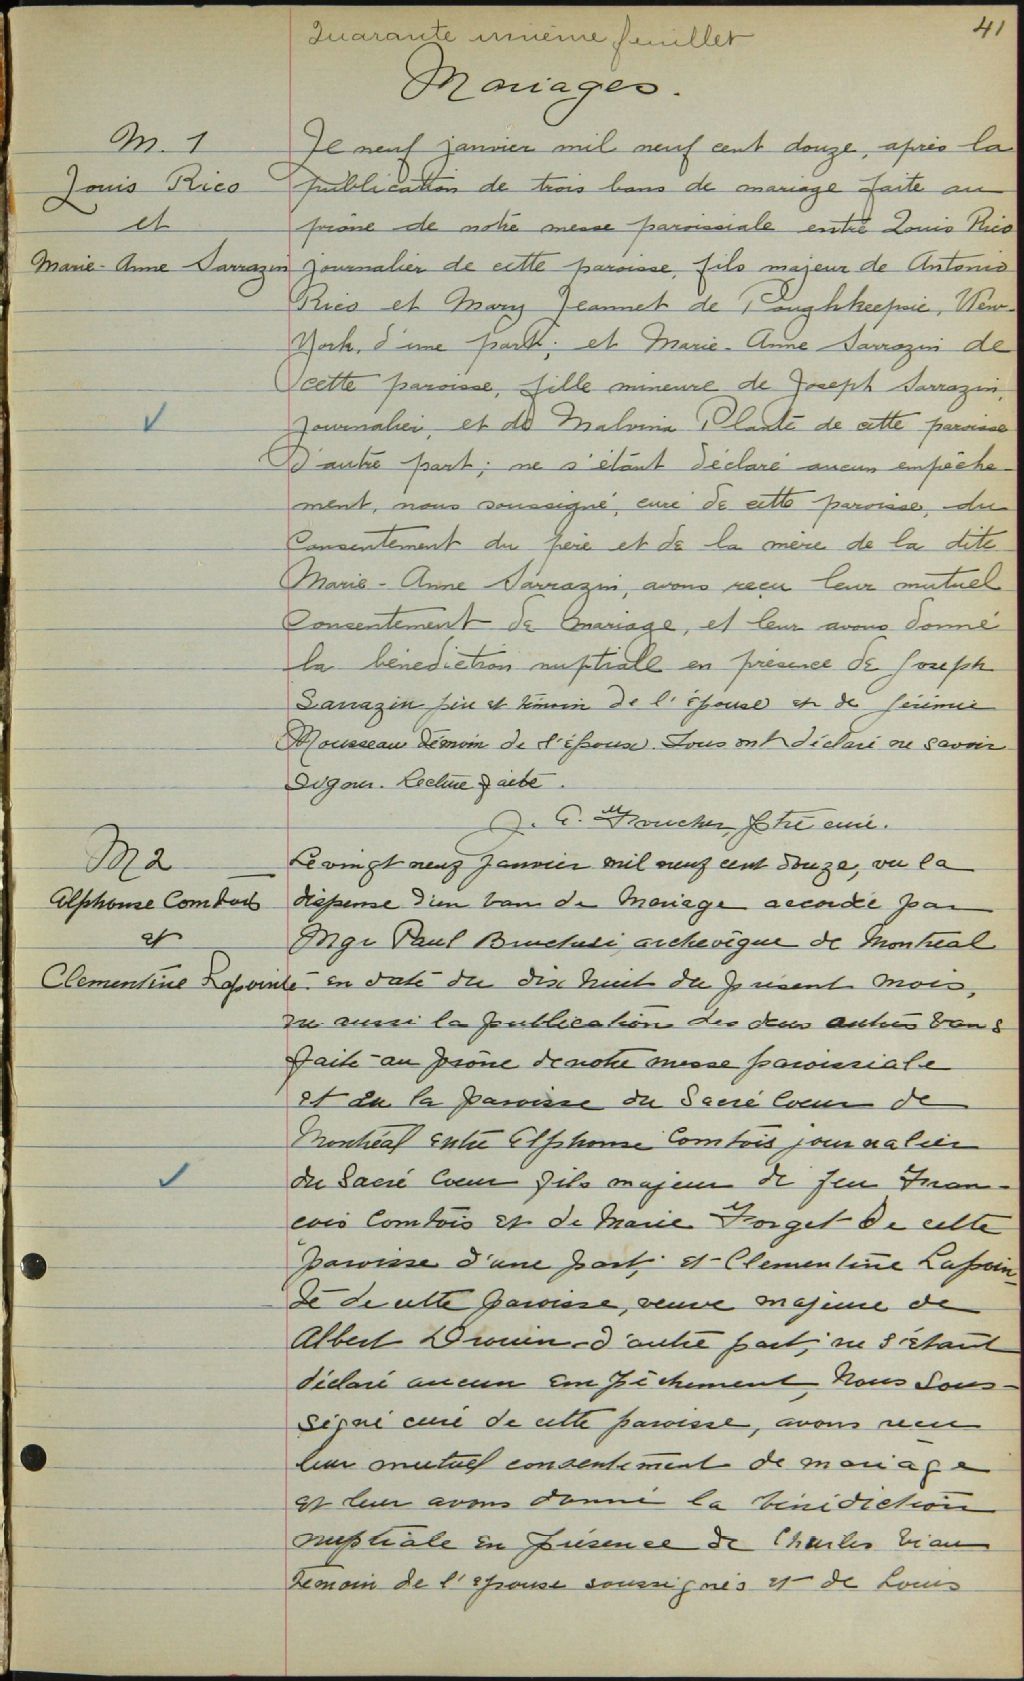 Quarante unième feuillet
41
Mariages.
M. 1
Louis Rico
et
Marie-Anne Sarrazin
Le neuf janvier mil neuf cent douze, après la
publication de trois bans de mariage faite au
prône de notre messe paroissiale entre Louis Rico
journalier de cette paroisse, fils majeur de Antonio
Rico et Mary Jeannet de Poughkeepsie, New-
York, d'une part; et Marie-Anne Sarrazin de
cette paroisse, fille mineure de Joseph Sarrazin,
journalier, et de Malvina Planté de cette paroisse
d'autre part; ne s'étant déclaré aucun empêche-
ment, nous soussigné, curé de cette paroisse, du
Consentement du père et de la mère de la dite
Marie-Anne Sarrazin, avons reçu leur mutuel
Consentement de mariage, et leur avons donné
la bénédiction nuptiale en présence de Joseph
Sarrazin père et témoin de l'épouse et de Jérémie
Mousseau témoin de l'époux. Tous ont déclaré ne savoir
signer. Lecture faite.
J. E. Foucher, ptre curé.
M 2
Alphonse Comtois
et
Clementine Lapointe
Le vingt neuf janvier mil neuf cent douze, vu la
dispense d'un ban de Mariage accordée par
Mgr Paul Bruchési, archevêque de Montréal
en date du dix huit du présent mois,
vu aussi la publication des deux autres bans
faite au prône de notre messe paroissiale
et en la paroisse du Sacré Coeur de
Montréal entre Alphonse Comtois journalier
du Sacré Coeur fils majeur de feu Fran-
cois Comtois et de Marie Forget de cette
paroisse d'une part; et Clementine Lapoin-
te de cette paroisse, veuve majeure de
Albert Drouin d'autre part; ne s'étant
déclaré aucun empêchement, Nous sous-
signé curé de cette paroisse, avons reçu
leur mutuel consentement de mariage
et leur avons donné la bénédiction
nuptiale en présence de Charles Viau
témoin de l'epouse soussignés et de Louis